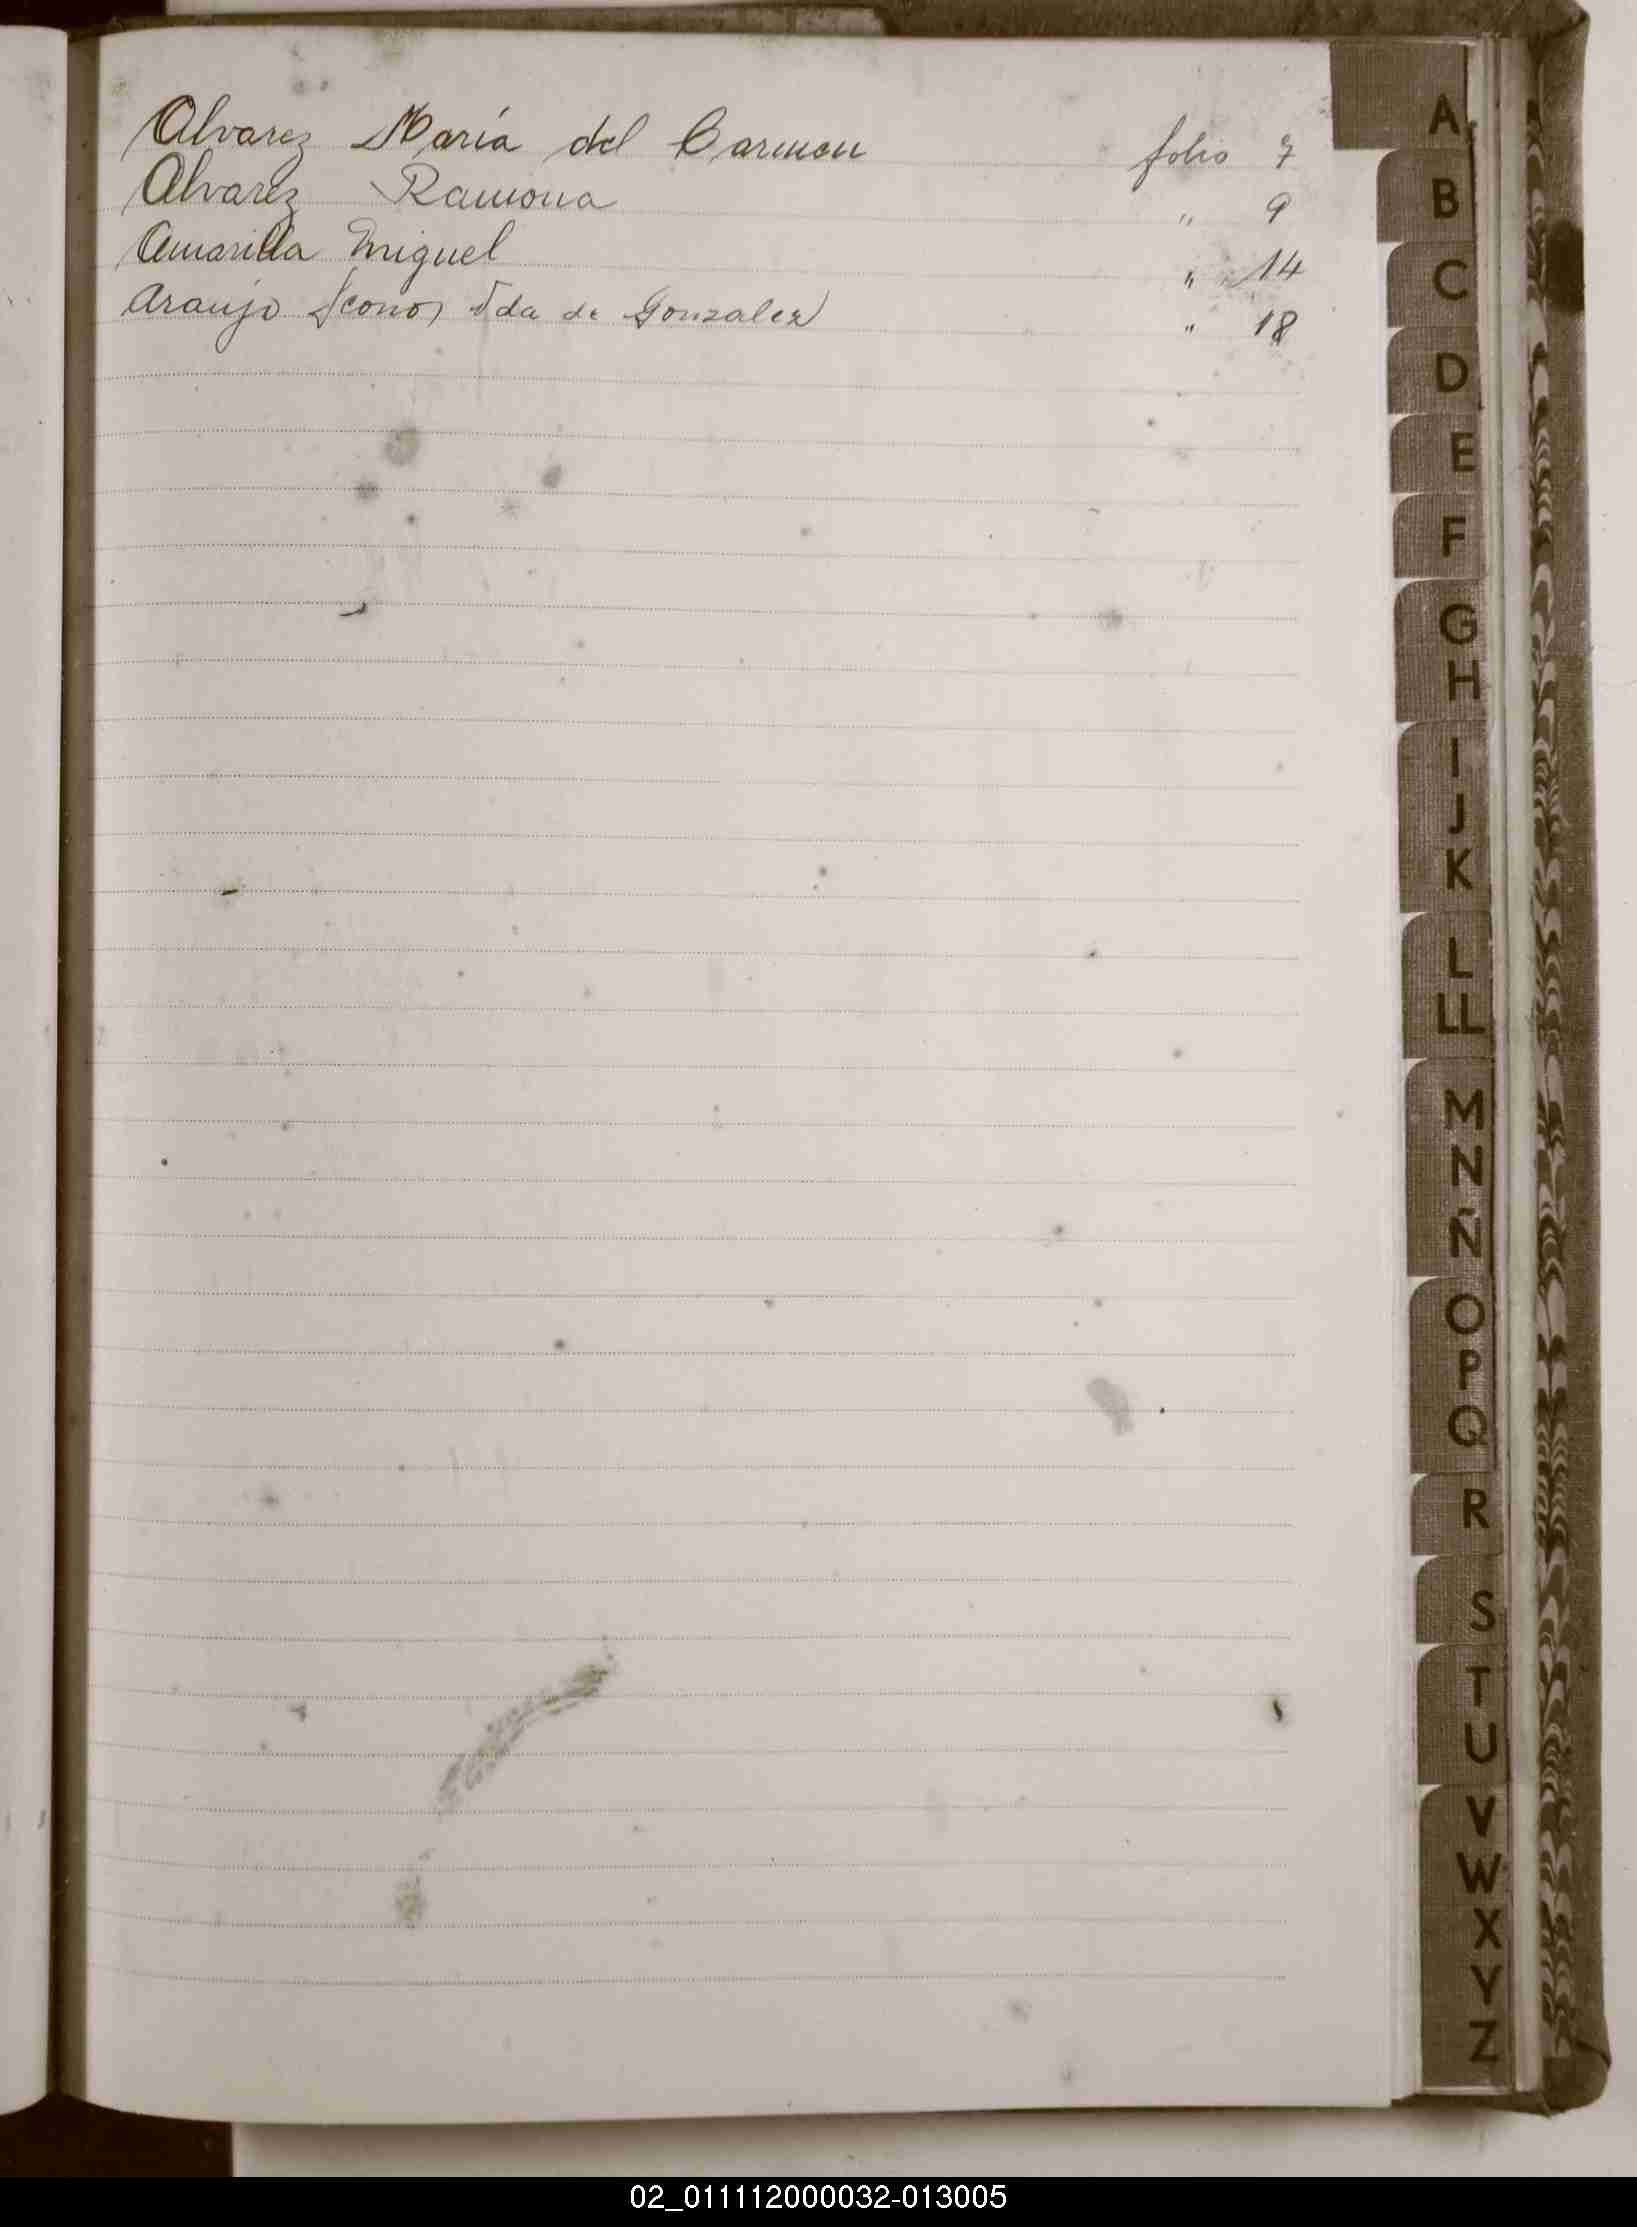 Alvarez María del Carmen folio 7
Alvarez Ramona " 9
Amarilla Miguel " 14
Araujo Vda de Gonzalez " 18
A
B
C
D
E
F
G
H
I
J
K
L
LL
M
N
Ñ
O
P
Q
R
S
T
U
V
W
X
Y
Z
02_011112000032-013005